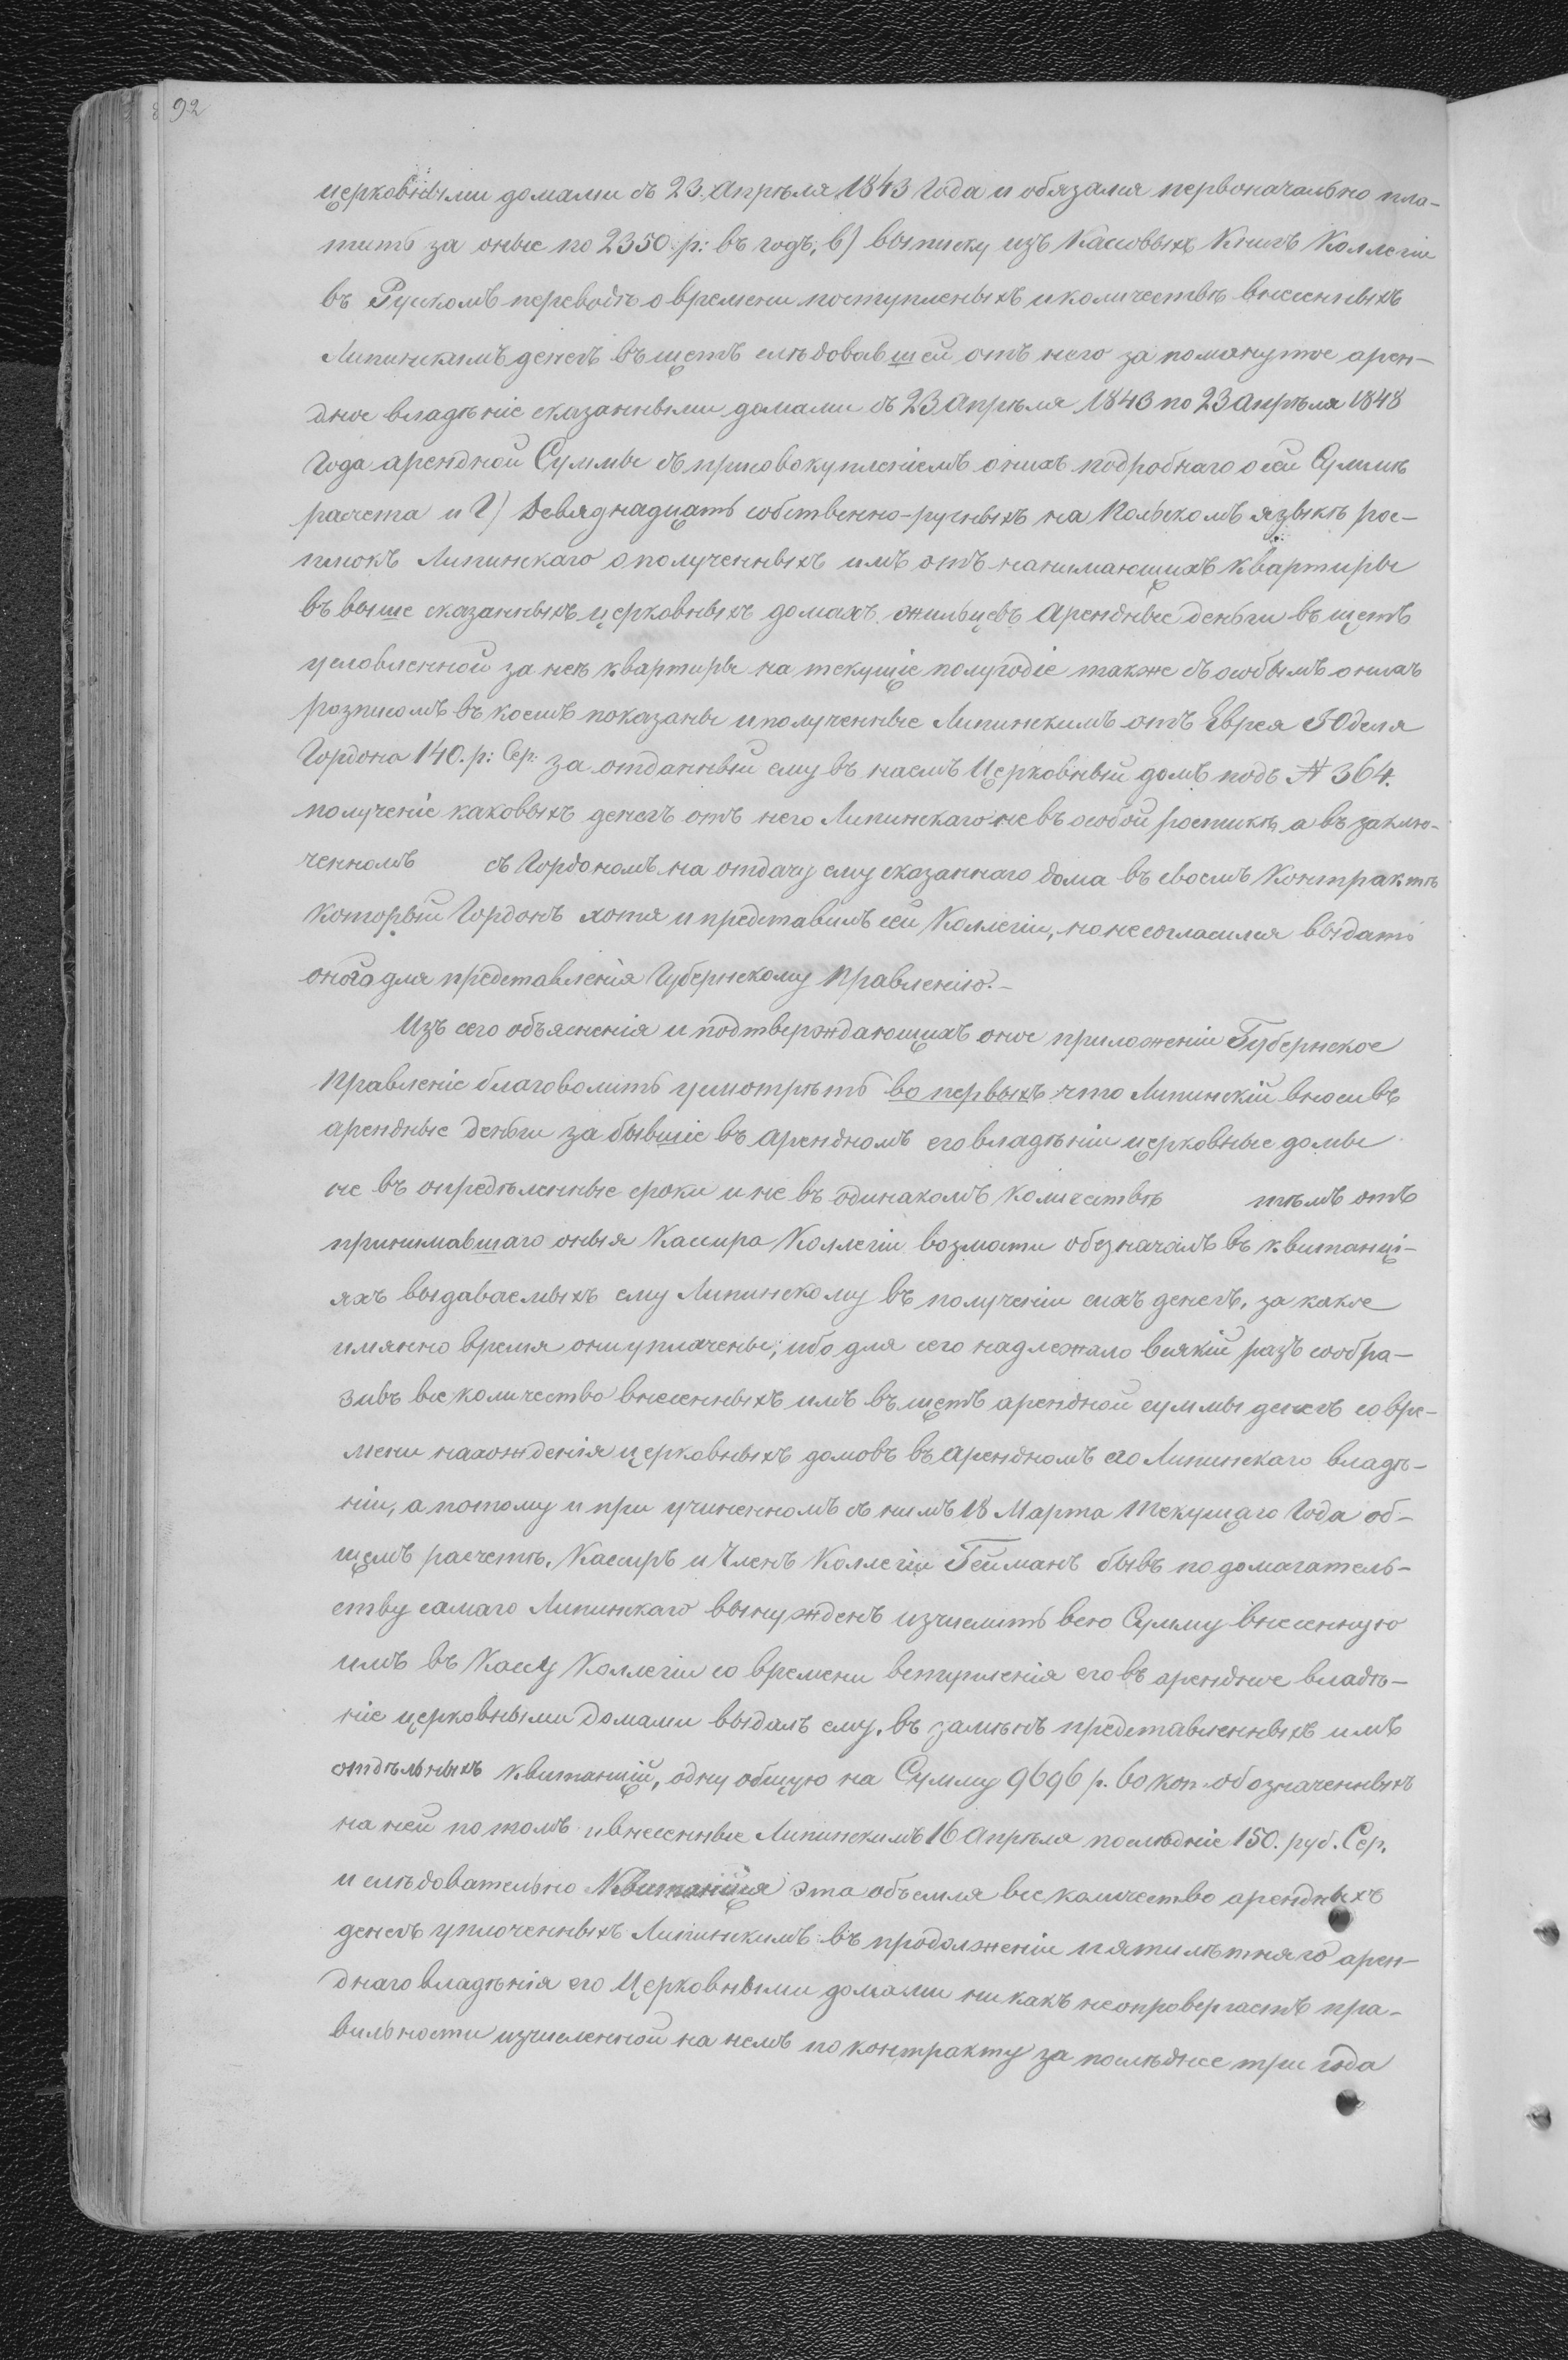 92
церковными домами съ 23 Апрѣля 1843 Года и обязался первоначально пла-
тить за оные по 2350 р: въ годъ, в) выписку изъ Кассовыхъ Книгъ Коллегіи
въ Рускомъ переводѣ о времени поступленыхъ и количествѣ внесенныхъ
Липинскимъ денегъ въ щетъ слѣдовавшей отъ него за помянутое арен-
дное владѣніе сказанными домами съ 23 Апрѣля 1843 по 23 Апрѣля 1848
Года арендной Суммы съ присовокупленіемъ онихъ подробнаго о сей Суммѣ
расчета и Г) Девяднадцать собственно-ручныхъ на Польскомъ языкѣ рос-
писокъ Липинскаго о полученныхъ имъ отъ нанимающихъ квартиры
въ выше сказанныхъ церковныхъ домахъ жильцевъ Арендные деньги въ щетъ
условленной за нек квартиры на текущіе полугодіе также съ особымъ о нихъ
розписомъ въ коемъ показаны и полученные Липинскимъ отъ Еврея Юделя
Гордона 140. р: Сер: за отданный ему въ наемъ Церковный домъ подъ № 364.
полученіе каковыхъ денегъ отъ него Липинскаго не въ особой роспискѣ а въ заклю-
ченномъ съ Гордономъ на отдачу ему сказаннаго дома въ своемъ Контрактѣ
который Гордонъ хотя и представилъ сей Коллегіи, но не согласился выдать
онаго для представленія Губернскому Правленію.-
Изъ сего объясненія и подтверждающихъ оное приложеніи Губернское
Правленіе благоволитъ усмотрѣть во первыхъ что Липинскій вносивъ
арендные деньги за бывшіе въ арендномъ его владѣніи церковные домы
не въ опредѣленные сроки и не въ одинакомъ количествѣ тѣмъ отъ
принимавшаго оныя Кассира Коллегіи возмости обезначалъ въ квитанці-
яхъ выдаваемыхъ ему Липинскому въ полученіи сихъ денегъ, за какое
имянно время они уплачены; ибо для сего надлежало всякій разъ сообра-
зивъ все количество внесенныхъ имъ въ щетъ арендной суммы денегъ со вре-
мени нахожденія церковныхъ домовъ въ арендномъ его Липинскаго владѣ-
ніи, а потому и при учиненномъ съ нимъ 18 Марта текущаго Года об-
щемъ расчетѣ, Кассиръ и Членъ Коллегіи Гейманъ бывъ по домагатель-
ству самаго Липинскаго вынужденъ изчислить всю Сумму внесенную
имъ въ Кассу Коллегіи со времени вступленія его въ арендное владѣ-
ніе церковными домами выдалъ ему, въ замѣнъ представленныхъ имъ
отдѣльныхъ квитанцій, одну общую на Сумму 9696 р. 60 коп. обозначенныхъ
на ней потомъ и внесенные Липинскимъ 16 Апрѣля послѣдніе 150. руб. Сер.
и слѣдовательно Квитанція эта объемля все количество арендныхъ
денегъ уплоченныхъ Липинскимъ въ продолженіи пятилѣтняго арен-
днаго владѣнія его Церковными домами ни какъ неопровергаетъ пра-
вильности изчисленной на немъ по контракту за послѣдніе три года